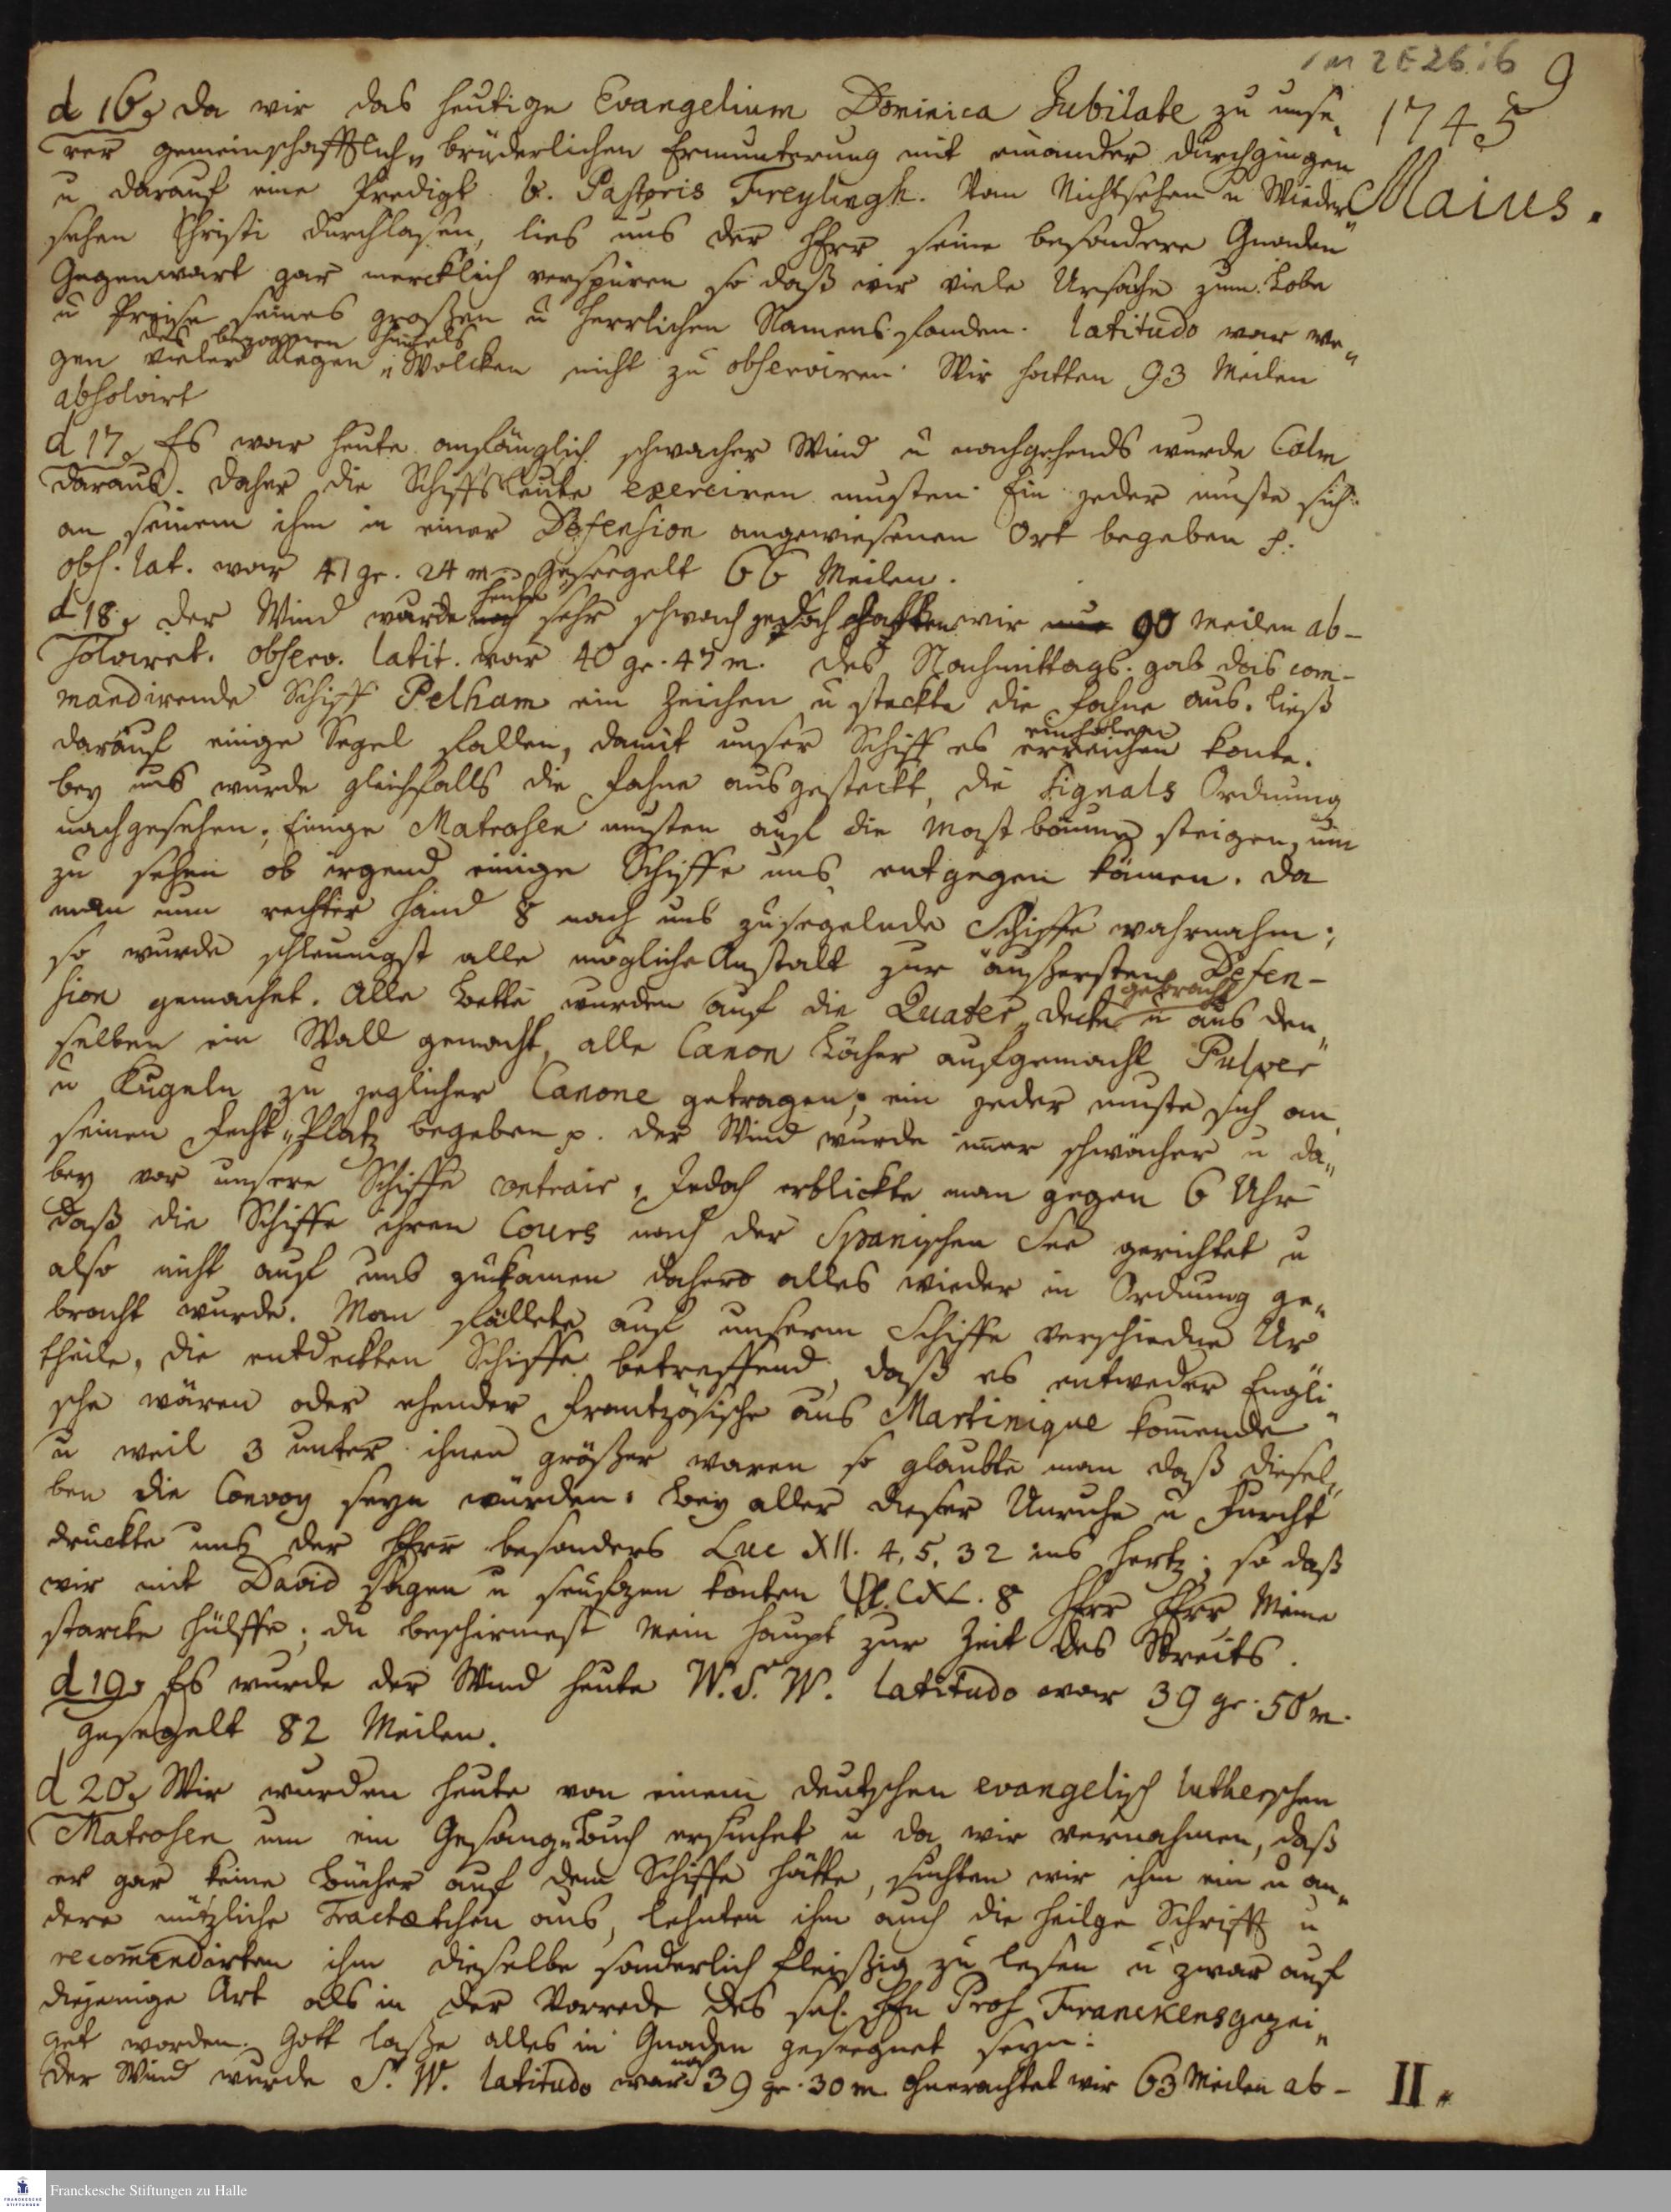 1 M 2 E 26 : 6
9
1745
Majus.
d 16. Da wir das heutige Evangelium Dominica Jubilate zu unse„
rer gemeinschafftlich„ brüderlichen Ermunterung mit einander durchgingen
u darauf eine Predigt b. Pastoris Freylingh. vom Nichtsehen u Wieder„
sehen Christi durchlasen, lies uns der HErr seine besondere Gnaden„
Gegenwart gar mercklich verspüren so daß wir viele Ursache zum Lobe
u Preise seines großen u herrlichen Namens fanden. Latitudo war we„
des bezogenen Himels
gen vieler Regen „Wolcken nicht zu observiren. Wir hatten 93 Meilen
absolvirt
d 17. Es war heute anfänglich schwacher Wind u nachgehends wurde Calm
daraus. Daher die Schiffsleute exerciren musten. Ein jeder muste sich
an seinem ihm in einer Defension angewiesenen Ort begeben p.
obs. lat. war 41 gr. 24 m. Geseegelt 66 Meilen.
heute
d 18. Der Wind wurde noch sehr schwach jedoch hatten wir nur 90 Meilen ab-
solviret. observ. latit. war 40 gr. 47 m. Des Nachmittags gab das com-
mandirende Schiff Pelham ein Zeichen u steckte die Fahne aus. ließ
einholen
darauf einige Segel fallen, damit unser Schiff es erreichen konte.
bey uns wurde gleichfalls die Fahne ausgesteckt, die Signals Ordnung
nachgesehen; Einige Matrosen musten auf die Mastbäume steigen, um
zu sehen ob irgend einige Schiffe uns entgegen kämen. Da
man nun rechter Hand 8 nach uns zusegelnde Schiffe wahrnahm;
so wurde schleunigst alle mögliche Anstalt zur äußersten Defen-
gebracht
sion gemachet. Alle Bette wurden auf die Quater„Decke u aus den„
selben ein Wall gemacht, alle Canon Löcher aufgemacht Pulver
u Kugeln zu jeglicher Canone getragen; ein jeder muste sich an
seinen Fecht„Platz begeben p. Der Wind wurde imer schwächer u da„
bey vor unsere Schiffe contrair, Jedoch erblickte man gegen 6 Uhr
daß die Schiffe ihren Cours nach der Spanischen See gerichtet u
also nicht auf uns zukamen dahero alles wieder in Ordnung ge„
bracht wurde. Man fällete auf unserm Schiffe verschiedne Ur
theile, die entdeckten Schiffe betreffend, daß es entweder Engli
sche wären oder ehender Frantzösische aus Martinique komende
u weil 3 unter ihnen größer waren so glaubte man daß diesel„
ben die Convoy seyn würden. Bey aller dieser Unruhe u Furcht
druckte uns der HErr besonders Luc XII. 4, 5, 32 ins Hertz; so daß
wir mit David sagen u seufzen konten Ps. CXL. 8 HErr HErr Meine
starcke Hülffe; du beschirmest mein Haupt zur Zeit des Streits.
d 19. Es wurde der Wind heute W. S. W. Latitudo war 39 gr. 50 m.
gesegelt 82 Meilen.
d 20. Wir wurden heute von einem deutschen evangelisch lutherschen
Matrosen um ein Gesang„Buch ersuchet u da wir vernahmen, daß
er gar keine Bücher auf dem Schiffe hätte, suchten wir ihm ein u an„
dere nützliche Tractætchen aus, lehnten ihm auch die heilge Schrifft u
recomendirten ihm dieselbe sonderlich fleißig zu lesen u zwar auf
diejenige Art als in der Vorrede des sel. Hfn Prof Franckens gezei„
get worden. Gott laße alles in Gnaden geseegnet seyn:
noch
Der Wind wurde S. W. Latitudo war 39 gr. 30 m. ohnerachtet wir 63 Meilen ab-
II.
Franckesche Stiftungen zu Halle
FRANCKESCHE
STIFTUNGEN